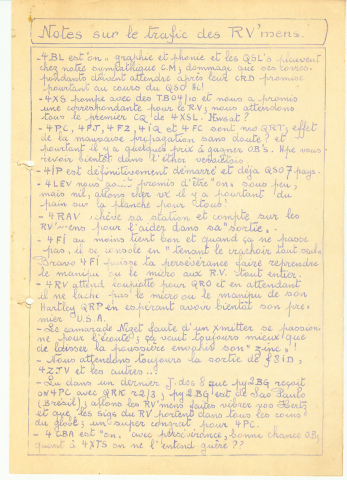 Notes sur le trafic des RV'mens.
-4BL est "on" graphie et phonie et les QSL's pleuvent
chez notre sympathique C.M; dommage que ses corres-
pondants doivent attendre après leur CRD promise
pourtant au cours du QSO hi!
-4XS pompe avec des TB04/10 et nous a promis
une correspondante pour le RV; nous attendons
tous le premier CQ de 4XSL. Kwsat?
-4PC, 4FJ, 4FZ, 4IQ et 4FC sont no QRT; effet
de la mauvaise préparation sans doute? et
pourtant il y a quelques prix à gagner OB's. Hpe vous
revoir bientôt dans l'éther verviétois.
-4IP est définitivement démarré et déjà QSO 7 pays.
-4LEV nous promis d'être "on" sous peu,
mais nil, allons cher vx il y a pourtant du
pain sur la planche pour tous!
-4RAV achève sa station et compte sur les
RV'mens pour l'aider dans sa "sortie".
-4FI au moins tient bon et quand ça ne passe
pas, il se console en "tenant le crachoir tout seul"
Bravo 4FI puisse ta persévérance faire reprendre
le manipu ou le micro aux RV. tout entier.
-4RV attend soupiette pour QRO et en attendant
il ne lâche pas le micro ou le manipu de son
Hartley QRP en espérant avoir bientôt son pre-
mier U.S.A.
-Le camarade Nizet faute d'un xmitter se passion-
ne pour l'écoute; ça vaut toujours mieux que
de laisser la poussière envahir son "zinc"!
-Nous attendons toujours la sortie de
4ZJV et les autres..?
-Lu dans un dernier J. des 8 que py2BG reçoit
on4PC avec QRK r2/3; py2BG est de Sao Paulo
(Brésil); allons les RV'mens faites vibrer vos Hertz
et que les sigs du RV portent dans tous les coins
du globe; un super congrat pour 4PC.
-4CBA est "on" avec persévérance, bonne chance OB;
quant à 4XTS on ne l'entend guère??